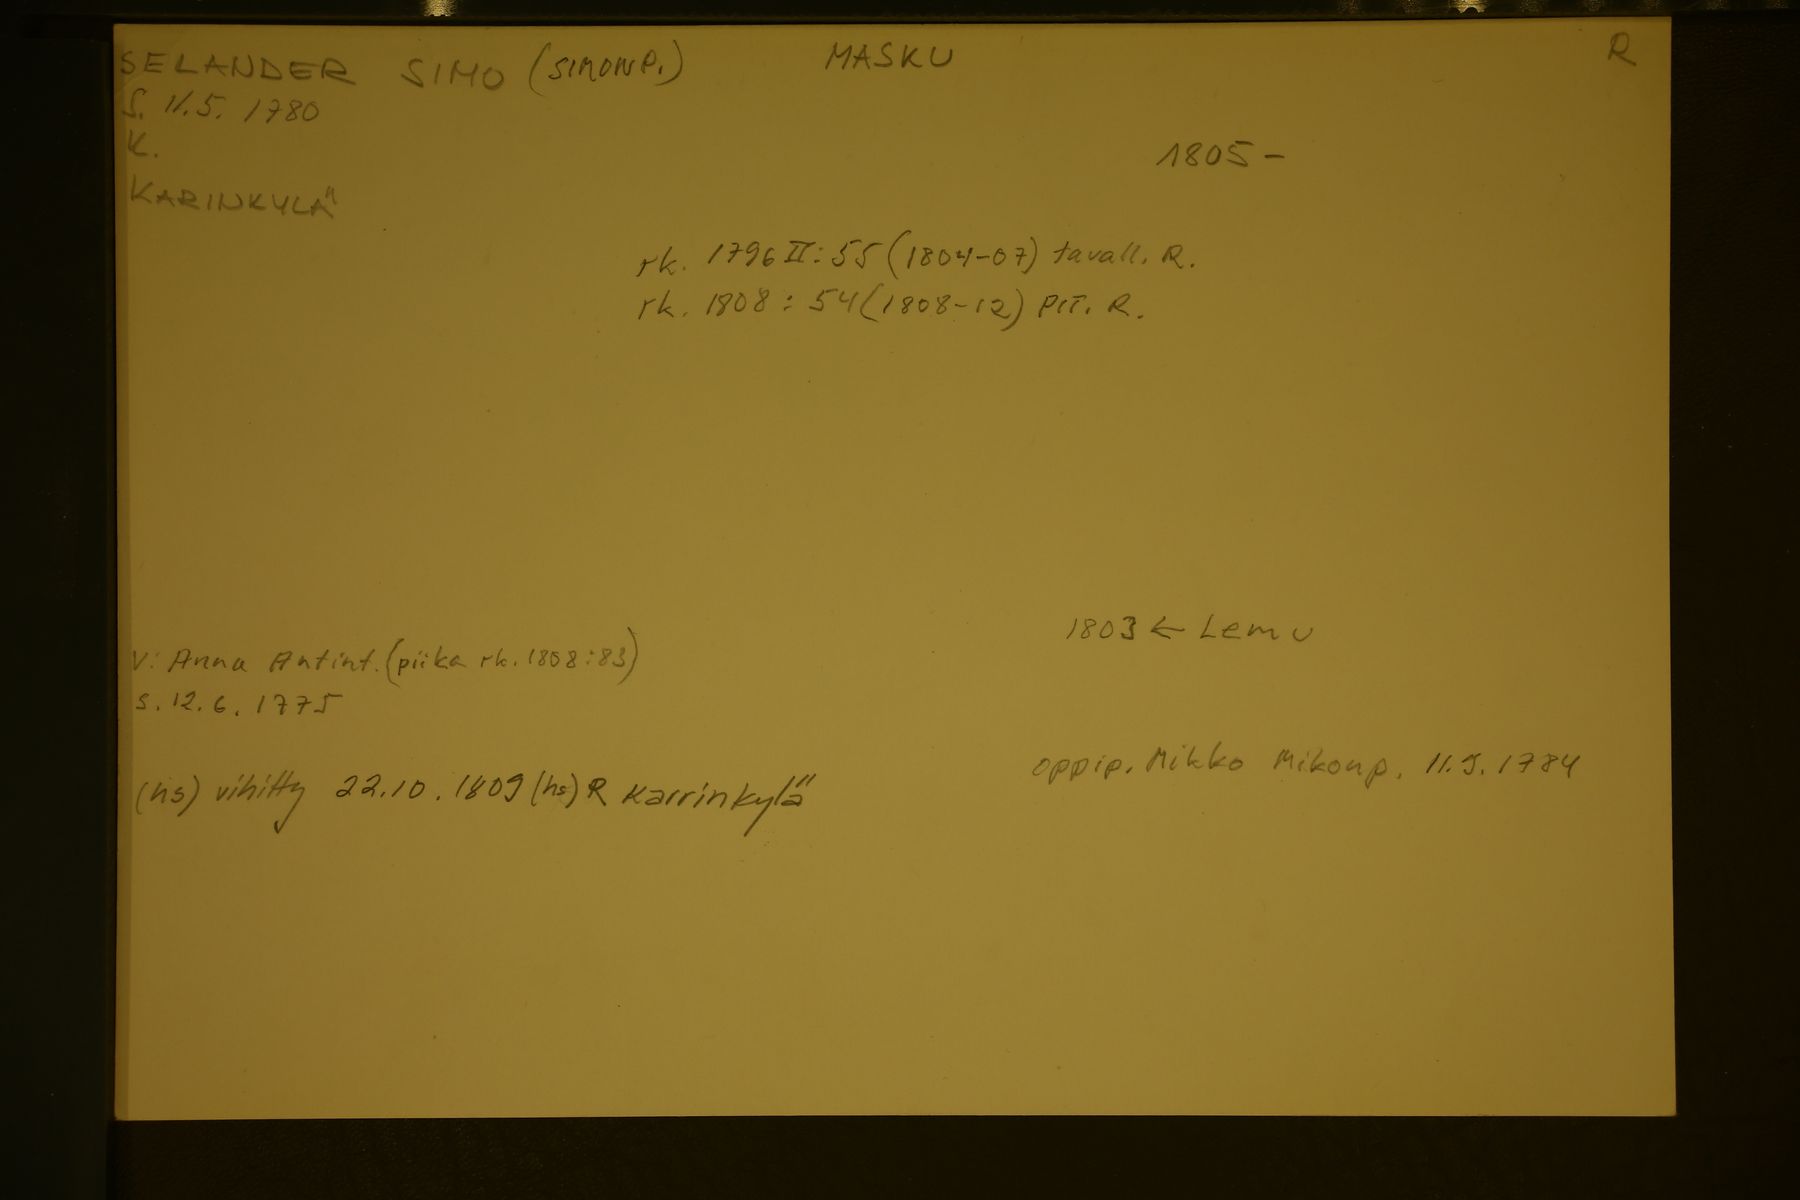 SELANDER SIMO (SIMONP.) MASKU R
S. 11.5. 1780
K.
1805-
KARINKYLÄ
rk. 1796 II: 55 (1804-07) tavall. R.
rk. 1808: 54 (1808-12) PIT. R.
1803 ← Lemu
V: Anna Antint. (piika rk. 1808:83)
s. 12.6. 1775
oppip. Mikko Mikonp. 11.9.1784
(hs) vihitty 22.10.1809 (hs) R Karrinkylä